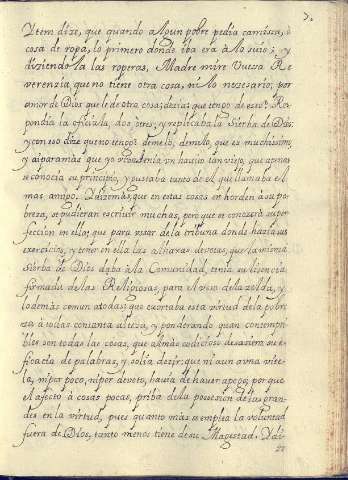 Ytem dize, que quando algun pobre pedia camissa, ò
cosa de ropa, lo primero donde iba era à lo suio; y
diziendo la las roperas, Madre mire Vuessa Re
verencia, que no tiene otra cosa, ni lo necesario; por
amor de Dios que le de otra cosa; decia; que tengo de esso? Res
pondia la oficiala, dos, ò tres; y replicaba la Sierba de Dios:
y con eso dize que no tengo? demelo, demelo, que es muchissimo
y aiparamas que yo vi
se conocia su principio, y gustaba tanto de el que llamaba el
mas amigo. Quizo mas, que en estas cosas en horden à su po
breza, se pudieran escriuir muchas, porque se conozca su per
feccion en ello; que para visor de la tribuna donde hazia sus
exercicios, y tener en ella las alhaxas devotas, que la misma
Sierba de Dios daba à la Comunidad, tenia su licencia
firmada de las Religiosas, para el viso de la zelda, y
lo demàs comun à todas; que exortaba esta virtud de la pobre
za à todas con tanta alteza, y ponderando quan contempti
bles son todas las cosas, que al mas codicioso desasiera su e
ficacia de palabras, y solia dezir: que ni aun à una vite
la, ni por poco, ni por devoto, havia de haver apego; por que
el afecto à cosas pocas, priba de la posession de las gran
des en la virtud, pues quanto màs se emplea la voluntad
fuera de Dios, tanto menos tiene de su Magestad. Y di